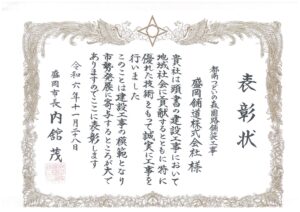 表彰状
都南つどいの森園路舗装工事
盛岡舗道株式会社 様
貴社は頭書の建設工事において
地域社会に貢献するとともに特に
優れた技術をもって誠実に工事を
行いました
このことは建設工事の模範となり
市勢発展に寄与するところが大で
ありますのでここに表彰します
令和六年十一月二十八日
盛岡市長 内舘 茂